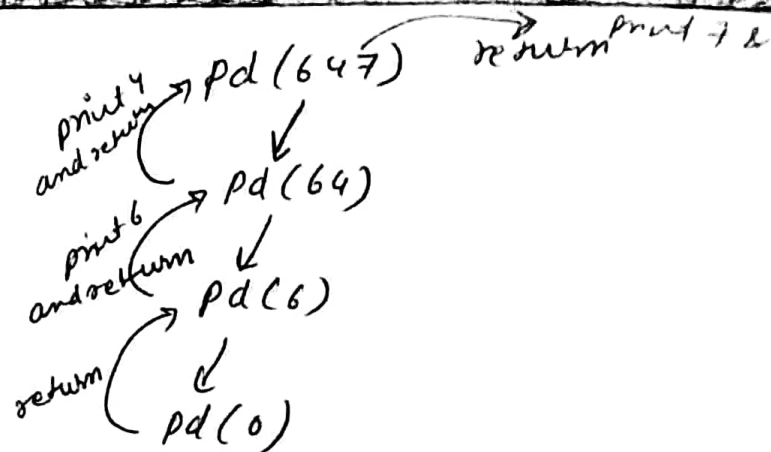 Pd (647)
return print 7 &
print 4
and return
Pd (64)
print 6
and return
Pd (6)
return
Pd (0)